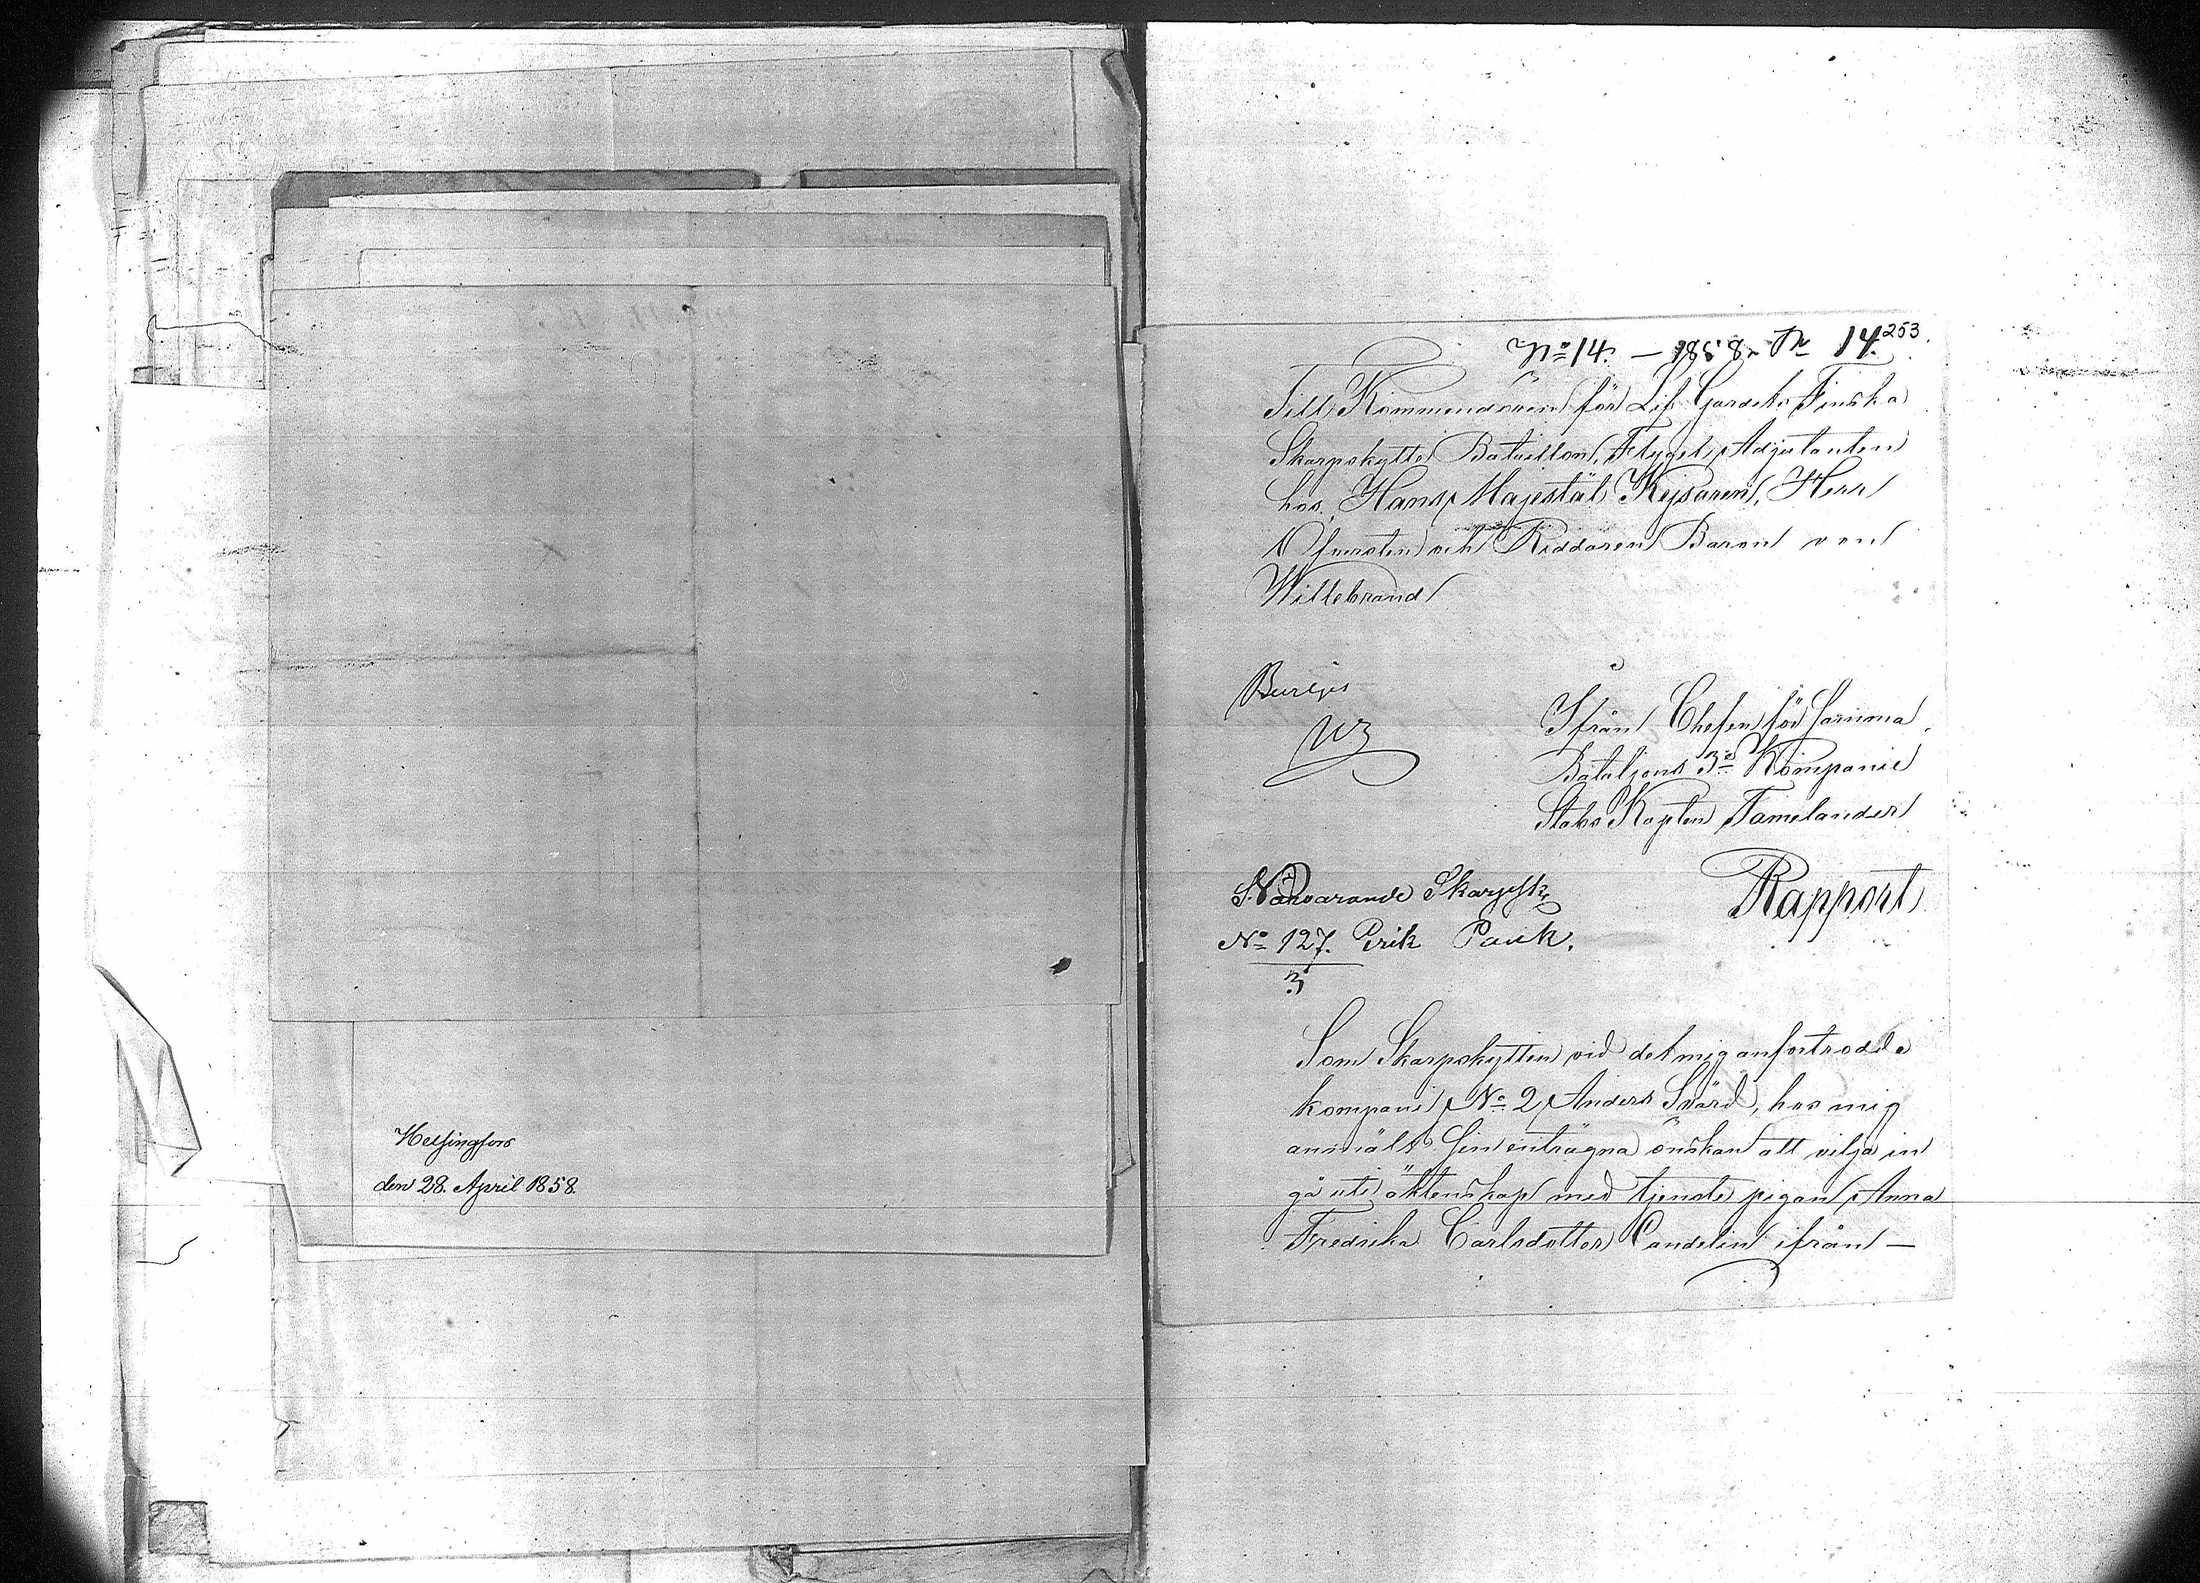 Helsingfors
den 28. April 1858.
253
No 14. — 1858. No 14.
Till Kommendören för Lif Gardets Finska
Skarpskytte Bataillon, Flygel Adjutanten
hos Hans Majestät Kejsaren, Herr
Öfversten och Riddaren Baron von
Willebrand
Ifrån Chefen för samma
Bataljons 3e Kompanie
Stabs Kapten Tamelander
Rapport
Närvarande Skarpsk.
No 127. Erik Pauk.
3
Som Skarpskytten vid det mig anförtrodde
kompani No 2 Anders Svärd, hos mig
anmält sin enträgna önskan att vilja in
gå uti äktenskap med tjenste pigan Anna
Fredrika Carlsdotter Candelin ifrån —